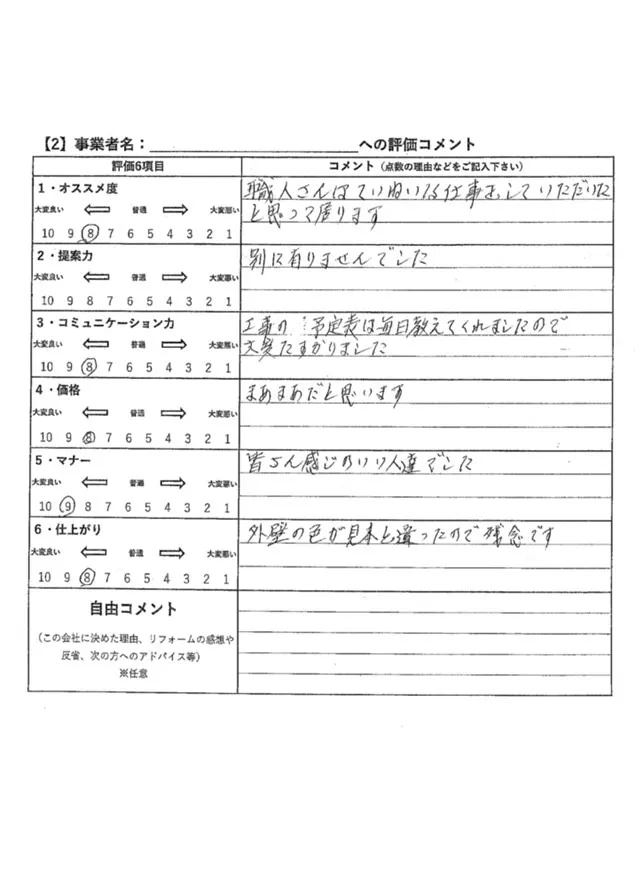 【2】事業者名：＿＿＿＿＿＿＿＿＿＿への評価コメント
評価6項目 コメント（点数の理由などをご記入下さい）
1・オススメ度 職人さんはていねいな仕事をしていただいた
大変良い 普通 大変悪い と思って居ります
10 9 8 7 6 5 4 3 2 1
2・提案力 別に有りませんでした
大変良い 普通 大変悪い
10 9 8 7 6 5 4 3 2 1
3・コミュニケーション力 工事の予定表は毎日教えてくれましたので
大変良い 普通 大変悪い 大変たすかりました
10 9 8 7 6 5 4 3 2 1
4・価格 まあまあだと思います
大変良い 普通 大変悪い
10 9 8 7 6 5 4 3 2 1
5・マナー 皆さん感じのいい人達でした
大変良い 普通 大変悪い
10 9 8 7 6 5 4 3 2 1
6・仕上がり 外壁の色が見本と違ったので残念です
大変良い 普通 大変悪い
10 9 8 7 6 5 4 3 2 1
自由コメント
（この会社に決めた理由、リフォームの感想や
反省、次の方へのアドバイス等）
※任意